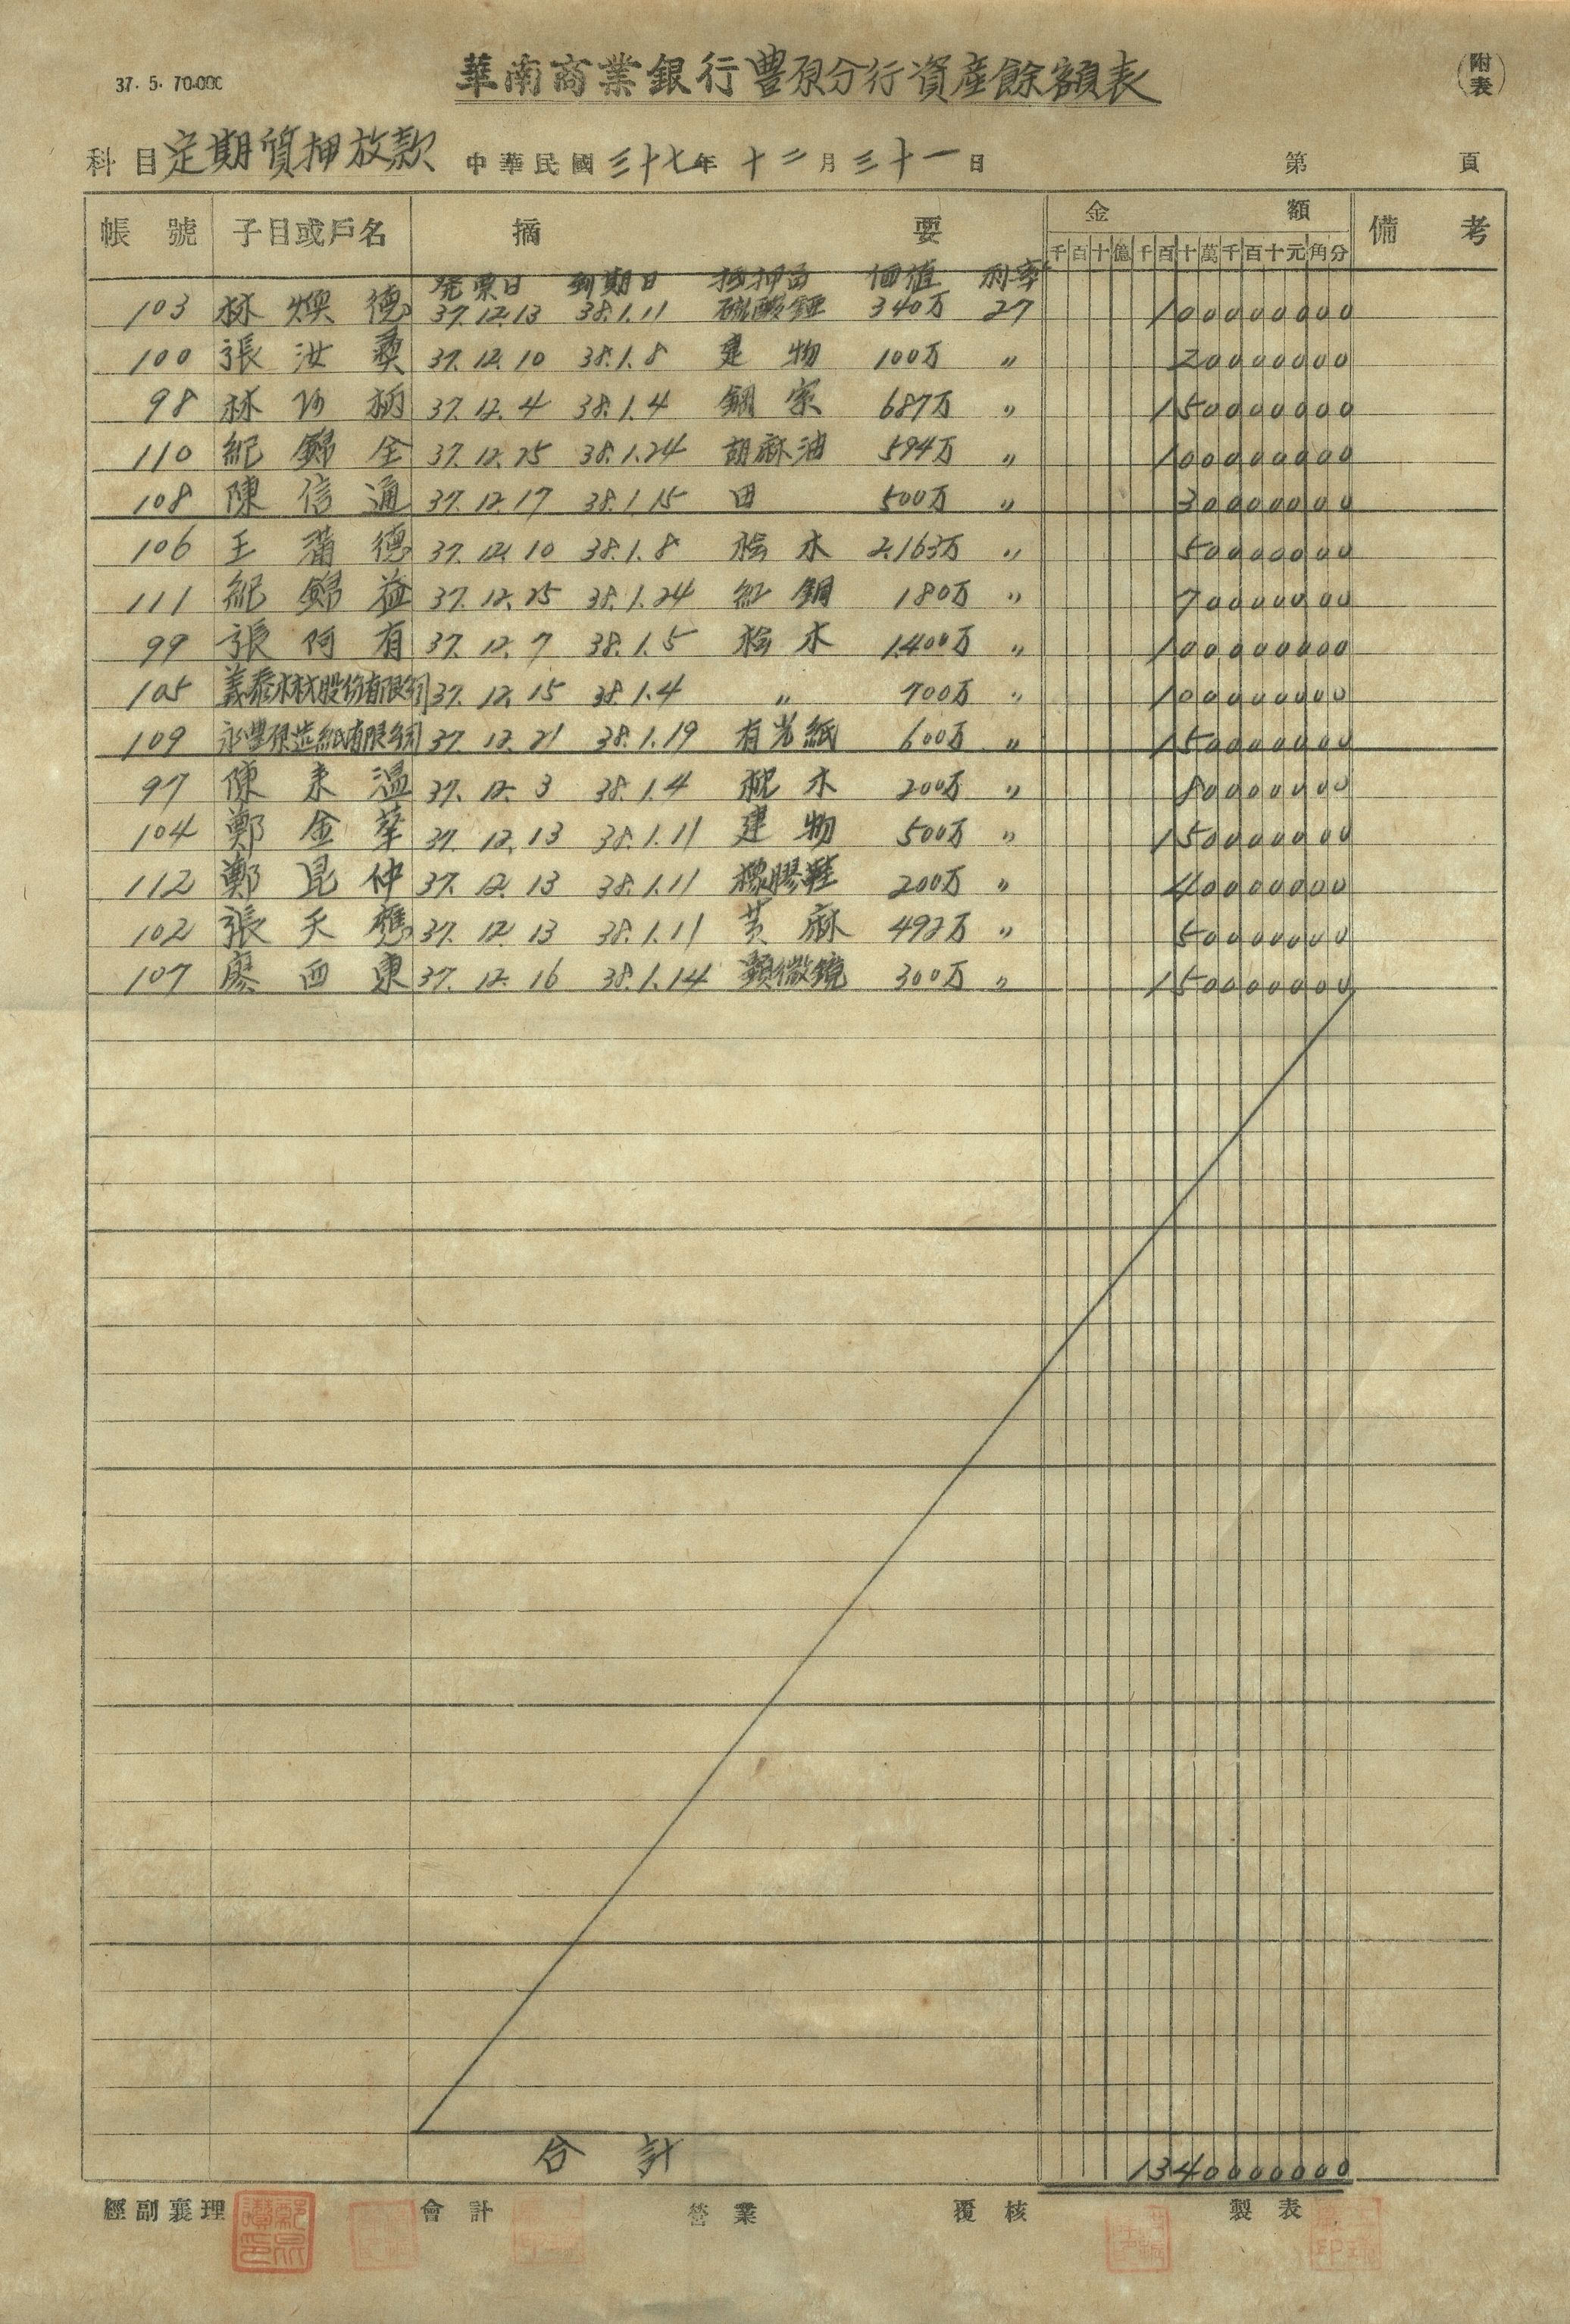 37. 5. 70.000
華南商業銀行豐原分行資產餘額表
(附表)
科目定期質押放款 中華民國三十七年十二月三十一日 第 頁
帳號 子目或戶名 摘要 金額 備考
千百十億千百十萬千百十元角分
発票日 到期日 抵押品 価値 利率
103 林煥德 37.12.13 38.1.11 硫酸錏 340万 27 1000000000
100 張汝 37.12.10 38.1.8 建物 100万 〃 200000000
98 林炳 37.12.4 38.1.4 687万 〃 1500000000
110 紀錦全 37.12.25 38.1.24 胡麻油 594万 〃 1000000000
108 陳信通 37.12.17 38.1.15 田 500万 〃 300000000
106 王德 37.12.10 38.1.8 桧木 2,163万 〃 500000000
111 紀錦益 37.12.25 38.1.24 紅銅 180万 〃 700000000
99 張阿有 37.12.7 38.1.5 桧木 1,400万 〃 1000000000
105 義泰木材股份有限公司 37.12.15 38.1.4 〃 700万 〃 1000000000
109 永豐原造紙有限公司 37.12.21 38.1.19 有光紙 600万 〃 1500000000
97 陳来温 37.12.3 38.1.4 木 200万 〃 800000000
104 鄭金華 37.12.13 38.1.11 建物 500万 〃 1500000000
112 鄭昆仲 37.12.13 38.1.11 橡膠鞋 200万 〃 400000000
102 張天 37.12.13 38.1.11 黄麻 492万 〃 500000000
107 廖西東 37.12.16 38.1.14 顕微鏡 300万 〃 1500000000
合計 13400000000
經副襄理 會計 營業 覆核 製表